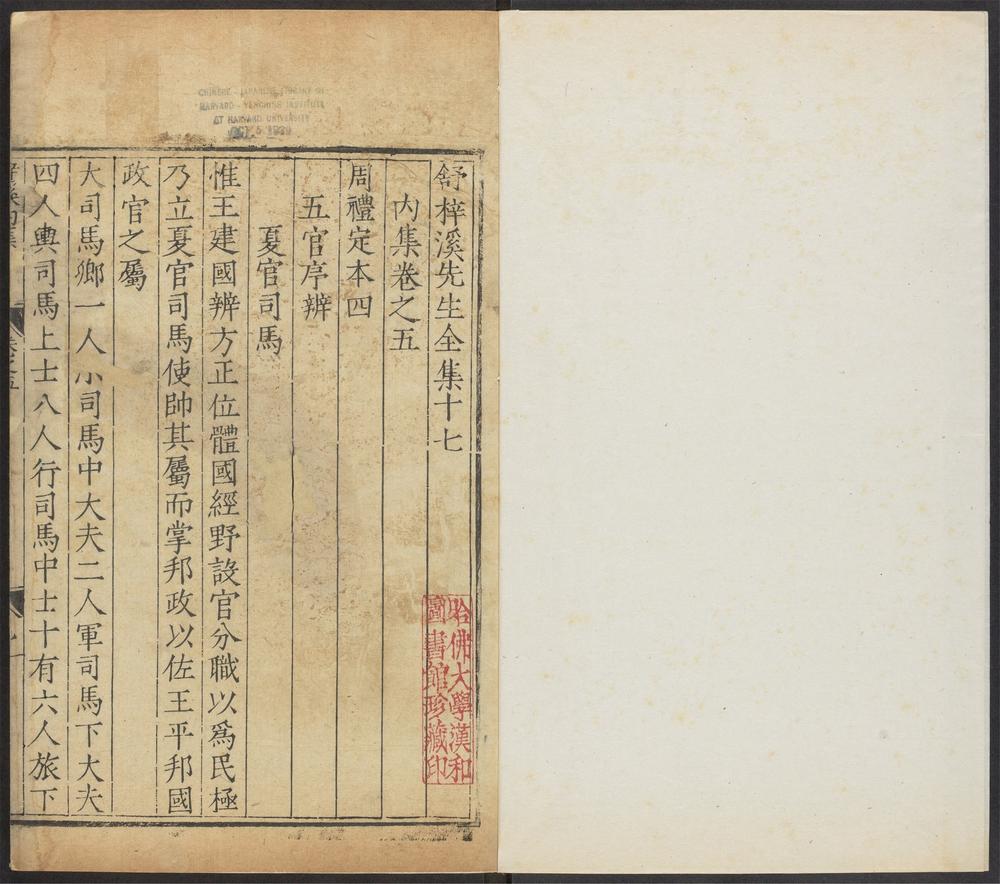 CHINESE - JAPANESE LIBRARY OF
HARVARD - YENCHING INSTITUTE
AT HARVARD UNIVERSITY
OCT 5 1939
舒梓溪先生全集十七
內集卷之五
周禮定本四
五官序辨
夏官司馬
惟王建國辨方正位體國經野設官分職以爲民極
乃立夏官司馬使帥其屬而掌邦政以佐王平邦國
政官之屬
大司馬鄉一人小司馬中大夫二人軍司馬下大夫
四人輿司馬上士八人行司馬中士十有六人旅下
卷之五
哈佛大學漢和
圖書館珍藏印